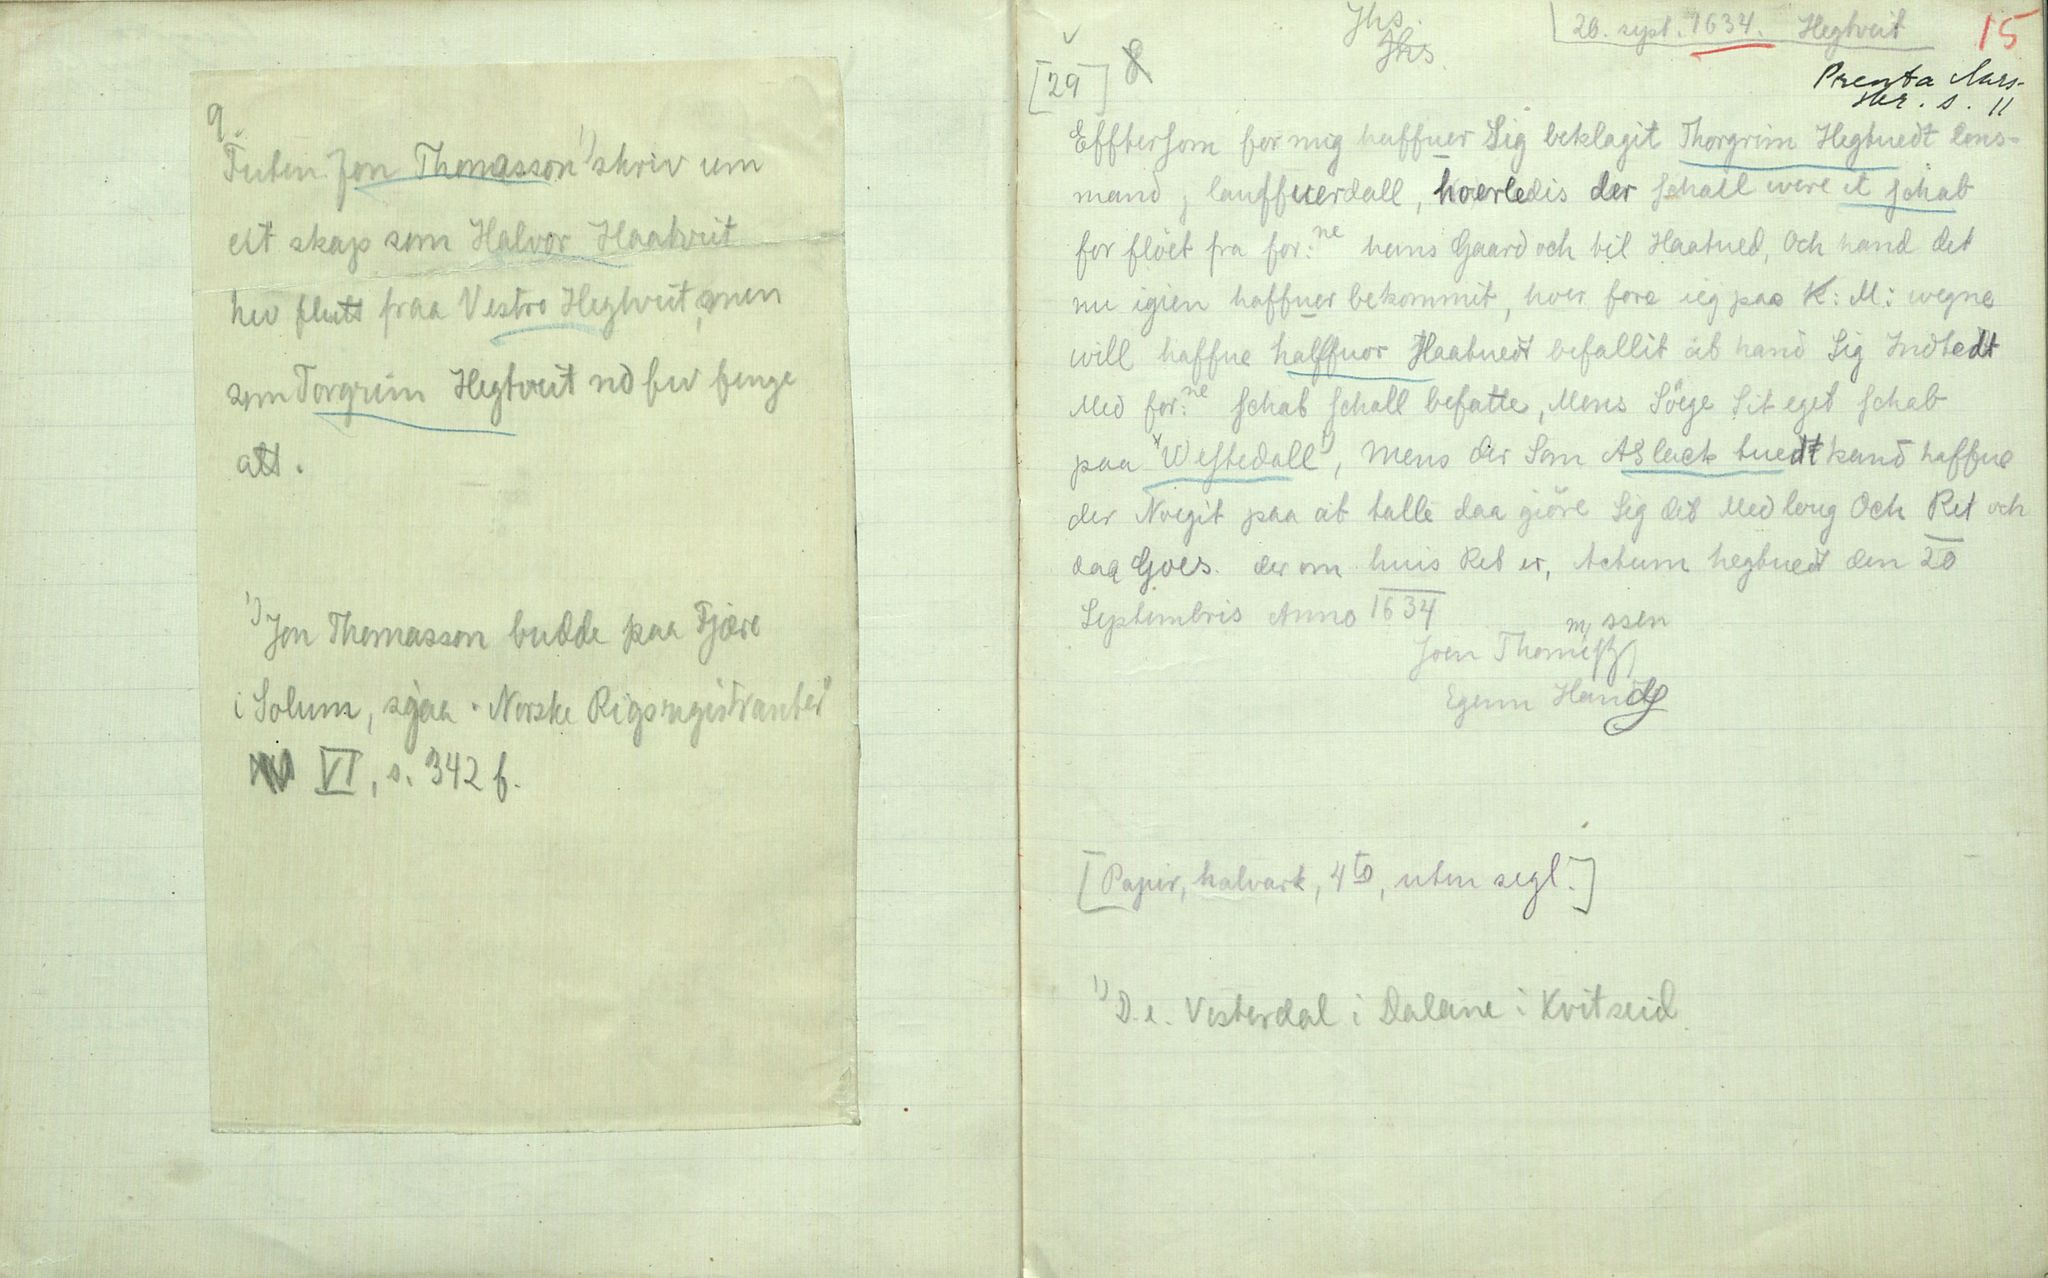 9.
Futen Jon Thomasson 1) skriv um
eit skap som Halvor Haatveit
hev flutt fraa Vestro Hegtveit, men
som Torgrim Hegtveit no hev fenge
att.
1) Jon Thomasson budde paa Fjære
i Solum, sjaa "Norske Rigsregistranter"
VI, s. 342 f.
Jhs.
Jhs.
20. sept. 1634. Hegtveit
15
[29]
Prenta Aars-
skr. s. 11
Effterſom for mig haffuer Sig beklagit Thorgrim Hegtuedt lens-
mand j lauffuerdall, hoerledis der ſchall were it ſchab
for flöet fra for:ne hans Gaard och til Haatued, Och hand det
nu igien haffuer bekommit, huor fore ieg paa K: M: wegne
will haffue halffuor Haatuedt befallit at hand Sig Indtedt
Med for:ne ſchab ſchall befatte, Mens Söge Sit eget ſchab
paa Weſtedall 1), Mens der Som Aslack tuedt kand haffue
der Noegit paa at talle daa giöre Sig det Med loug Och Ret och
daa Goes der om huis Ret er, Actum hegtuedt den 20
Septembris Anno 1634
m ssen
Joen Thomeſſ
Egenn Handt
[Papir, halvark, 4to, uten segl.]
1) D. e. Vesterdal i Dalane i Kvitseid